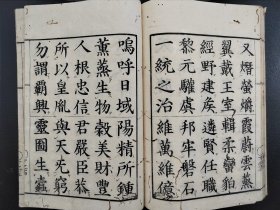 又熠螢燐霞蔚雲蒸
翼戴王室輯柔黌
經野建矦遴賢任職
黎元驩虞邦牢磐石
一統之治維萬維億
嗚呼日域陽精所鍾
薰蒸生物穀美財豐
人根忠信君嚴臣恭
所以皇胤與天旡窮
勿謂覇興靈囿生蠡